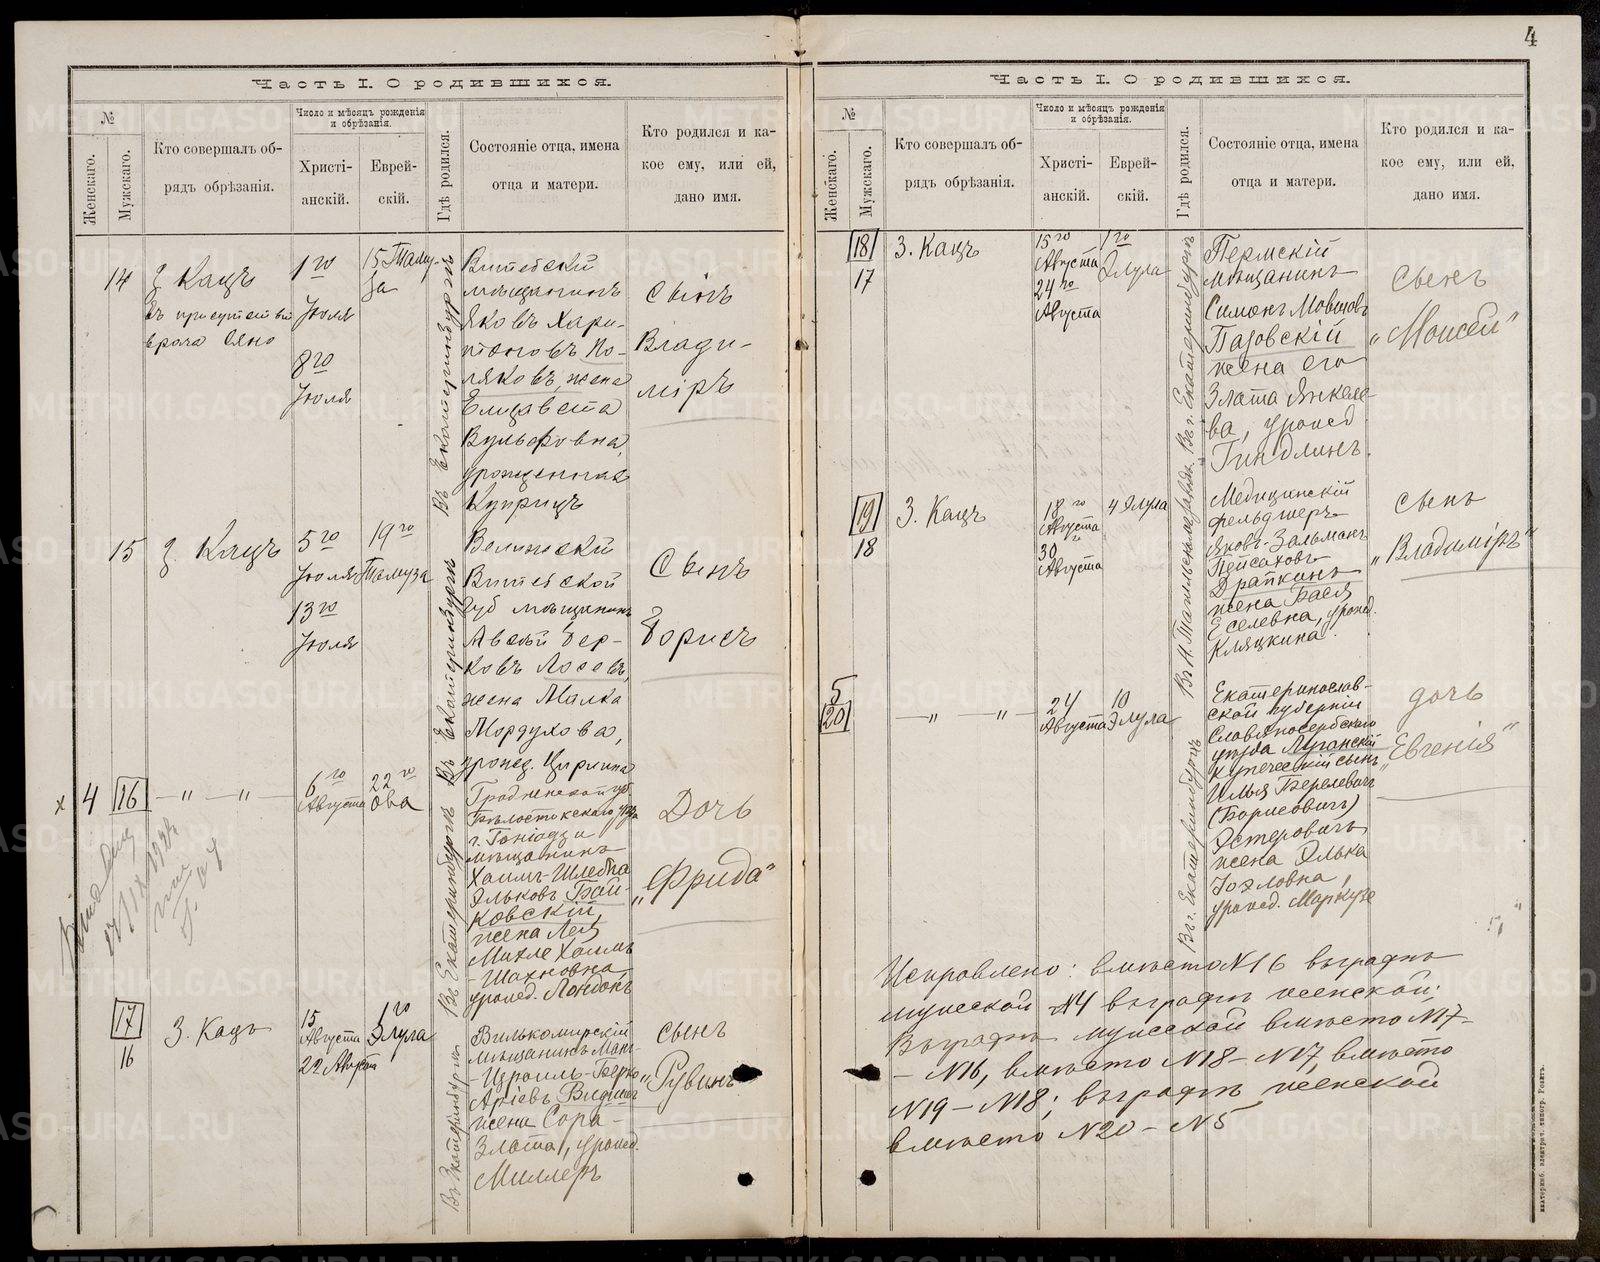 4
Часть I. О родившихся.
№
Женскаго.
Мужскаго.
Кто совершалъ об-
рядъ обрѣзанія.
Число и мѣсяцъ рожденія
и обрѣзанія.
Христі-
анскій.
Еврей-
скій.
Гдѣ родился.
Состояніе отца, имена
отца и матери.
Кто родился и ка-
кое ему, или ей,
дано имя.
14
З. Кацъ
въ присутствіи
врача Сяно
1го
Іюля
8го
Іюля
15 Таму-
за
Въ Екатеринбургѣ
Витебскій
мѣщанинъ
Яковъ Хари-
тоновъ По-
ляковъ, жена
Елизавета
Вульфовна,
урожденная
Куприцъ
сынъ
Влади-
міръ
15
З. Кацъ
5го
Іюля
13го
Іюля
19го
Тамуза
Въ Екатеринбургѣ
Велижскій
Витебской
губ мѣщанинъ
Авсѣй Бер-
ковъ Лосевъ,
жена Малка
Мордухова,
урожд. Цирлина
Сынъ
Борисъ
х 4
16
— „ — „ —
6го
Августа
22го
Ова
Въ Екатеринбургѣ
Гродненской губ.
Бѣлостокскаго уѣзда
г. Гоніадзи
мѣщанинъ
Хаимъ-Шлема
Эльковъ Бай-
ковскій,
жена Лея
Михле Хаимъ
-Шахновна,
урожд. Лондонъ
Дочь
„Фрида“
17
16
З. Кацъ
15
Августа
22 Августа
1го
Элула
Въ Екатеринбургѣ
Вилькомирскій
мѣщанинъ
-Израиль-Берко
Аріевъ
жена Сора-
Злата, урожд.
Миллеръ
сынъ
„Рувинъ“
Часть I. О родившихся.
№
Женскаго.
Мужскаго.
Кто совершалъ об-
рядъ обрѣзанія.
Число и мѣсяцъ рожденія
и обрѣзанія.
Христі-
анскій.
Еврей-
скій.
Гдѣ родился.
Состояніе отца, имена
отца и матери.
Кто родился и ка-
кое ему, или ей,
дано имя.
18
17
З. Кацъ
15го
Августа
24го
Августа
1го
Элула
Въ г. Екатеринбургѣ
Пермскій
мѣщанинъ
Симонъ Мовшовъ
Пазовскій
жена его
Злата Янкеле-
ва, урожд
Гиндлинъ.
сынъ
„Моисей“
19
18
З. Кацъ
18го
Августа
30
Августа
4 Элула
Въ Н. Тагильскомъ заводѣ.
Медицинскій
фельдшеръ
Яковъ-Зальманъ
Пейсаховъ
Драпкинъ
жена Бася
Еселевна, урожд.
Кляцкина.
сынъ
„Владиміръ“
5
20
— „ — „ —
24
Августа
10
Элула
Въ г. Екатеринбургѣ
Екатеринослав-
ской губерніи
Славяносербскаго
уѣзда Луганскій
купеческій сынъ
Илья Берелевичъ
(Борисовичъ)
Эстеровичъ
жена Элька
Іоэловна,
урожд. Маркузе
дочь
„Евгенія“
Исправлено: вмѣсто №16 въ графѣ
мужской №4 въ графѣ женской;
Въ графѣ мужской вмѣсто №17-
- №16, вмѣсто №18-№17, вмѣсто
№19-№18; въ графѣ женской
вмѣсто №20-№5
METRIKI.GASO-URAL.RU